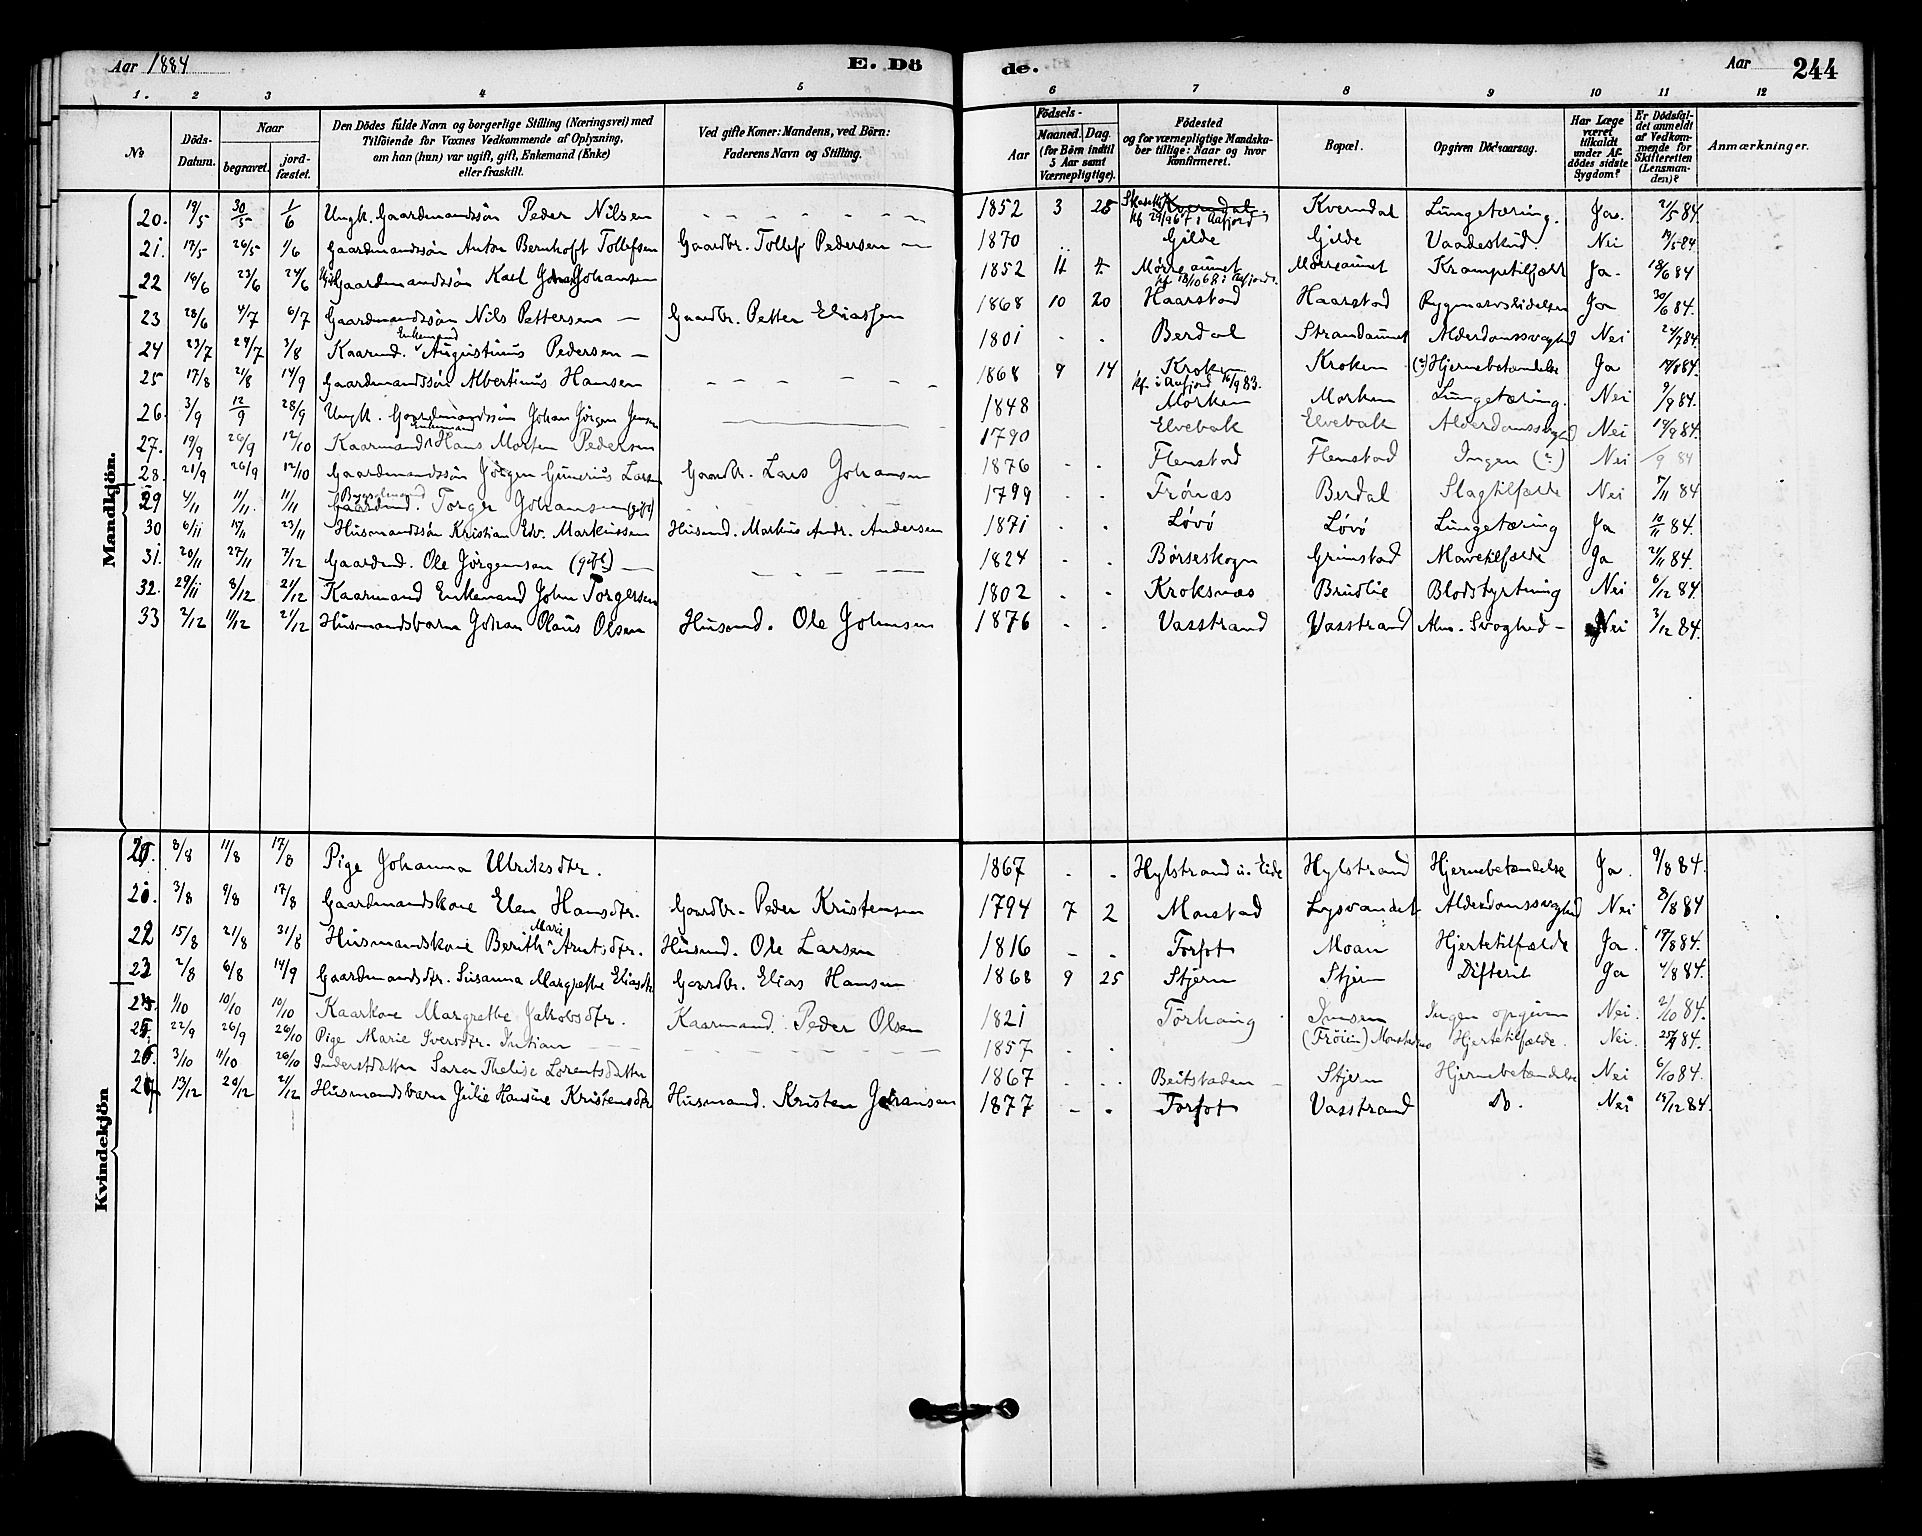 Aar 1884 E. Dö de. Aar 244
1. 2 3 4 5 6 7 8 9 10 11 12
№ Döds-Datum. Naar begravet. jordfæstet. Den Dödes fulde Navn og borgerlige Stilling (Næringsvei) med Tilföiende for Voxnes Vedkommende af Oplysning, om han (hun) var ugift, gift, Enkemand (Enke) eller fraskilt. Ved gifte Koner: Mandens, ved Börn: Faderens Navn og Stilling. Aar Födsels- Maaned. Dag. (for Börn indtil 5 Aar samt Værnepligtige). Födested og for værnepligtige Mandskaber tillige: Naar og hvor konfirmeret. Bopæl. Opgiven Dödsaarsag. Har Læge været tilkaldt under Afdödes sidste Sygdom? Er Dödsfaldet anmeldt af Vedkommende for Skifteretten (Lensmanden)? Anmærkninger.
Mandkjön.
20. 19/5 30/5 1/6 Ungk. Gaardmandssön Peder Nilsen - - - 1852 3 28 Kverndal kf. 29/9 67 i Aafjord Kverndal Lungetæring. Ja. 21/5 84
21. 17/5 26/5 1/6 Gaardmandssön Anton Bernhoft Tollefsen Gaardbr. Tollef Pedersen — 1870 Gilde Gilde Vaadeskud. Nei 19/5 84
22 14/6 23/6 24/6 Gaardmandssön Karl Johansen 1852 11 4. Mørreaunet kf. 18/10 68 i Aafjord. Mørreaunet Krampetilfælde Ja. 18/6 84
23 28/6 4/7 6/7 Gaardmandssön Nils Pettersen — Gaardbr. Petter Eliassen 1868 10 20 Haarstad Haarstad Rygmarvslidelse Ja 30/6 84.
24 23/7 29/7 3/8 Kaarmd. Enkemand Augustinus Pedersen — 1801 - - Berdal Strandaunet Alderdomssvaghed Nei 24/7 84.
25 17/8 21/8 14/9 Gaardmandssön Albertinus Hansen - - - 1868 9 14 Kroken kf. i Aafjord 16/9 83. Kroken (?) Hjernebetændelse Ja 19/8 84.
26. 3/9 12/9 28/9 Ungk. Gaardmandssön Johan Jörgen Jensen 1848 Morken Morken Lungetæring. Nei 9/9 84.
27. 19/9 26/9 12/10 Kaarmand Enkemand Hans Morten Pedersen 1790 Elvebak Elvebak Alderdomssvaghed Nei 19/9 84.
28. 21/9 26/9 12/10 Gaardmandssön Jörgen Gunerius Larsen Gaardbr. Lars Johansen 1876 - - Flenstad Flenstad Ingen (?) Nei /9 84
29 4/11 11/11 11/11 Torger Johansen (gift) 1799 - - Frönæs Berdal Slagtilfælde Nei 5/11 84
30 6/11 17/11 23/11 Husmandssön Kristian Edv. Markussen Husmd. Markus Andr. Andersen 1871 - - Lövö Lövö Lungetæring Ja 10/11 84.
31. 20/11 27/11 7/12 Gaardmd. Ole Jörgensen (gift) — 1824 - - Börseskogn Grinstad Mavetilfælde Ja 21/11 84.
32. 29/11 8/12 21/12 Kaarmand Enkemand John Torgersen 1802 - - Kroksnæs Brudlie Blodstyrtning Nei 6/12 84
33 2/12 11/12 21/12 Husmandsbarn Johan Olaus Olsen Husmd. Ole Johnsen 1876 - - Vasstrand Vasstrand Alm. Svaghed - Nei 3/12 84.
Kvindekjön
20. 3/8 11/8 17/8 Pige Johanna Ulriksdtr. 1867 - - Hylstrand u. Eide Hylstrand Hjernebetændelse Ja. 9/8 84.
21. 3/8 9/8 17/8 Gaardmandskone Elen Hansdtr. Gaardbr. Peder Kristensen 1794 7 2 Monstad Lysvandet Alderdomssvaghed Nei 8/8 84
22 15/8 21/8 31/8 Husmandskone Berith Marie Arntsdtr. Husmd. Ole Larsen 1816 - - Forfot Moan Hjertetilfælde Ja. 19/8 84.
23 2/8 6/8 14/9 Gaardmandsdtr. Susanna Margrethe Eliasdtr Gaardbr. Elias Hansen 1868 9 25 Stjern Stjern Difterit Ja 4/8 84.
24. 1/10 10/10 10/10 Kaarkone Margrethe Jakobsdtr. Kaarmand Peder Olsen 1821 - Törhaug Ivusen Ingen opgiven Nei. 2/10 84.
25. 22/9 26/9 26/10 Pige Marie Iversdtr. - - - 1857 - - (Fröien) Hjertetilfælde. Nei. 84.
26. 3/10 11/10 26/10 Inderstdatter Sara Thelise Lorentsdatter 1867 - - Beitstaden Stjern Hjernebetændelse Nei 6/10 84.
27 13/12 20/12 21/12 Husmandsbarn Julie Hansine Kristensdtr Husmand. Kristen Johansen 1877 - - Forfot Vasstrand Do. Nei 15/12 84.